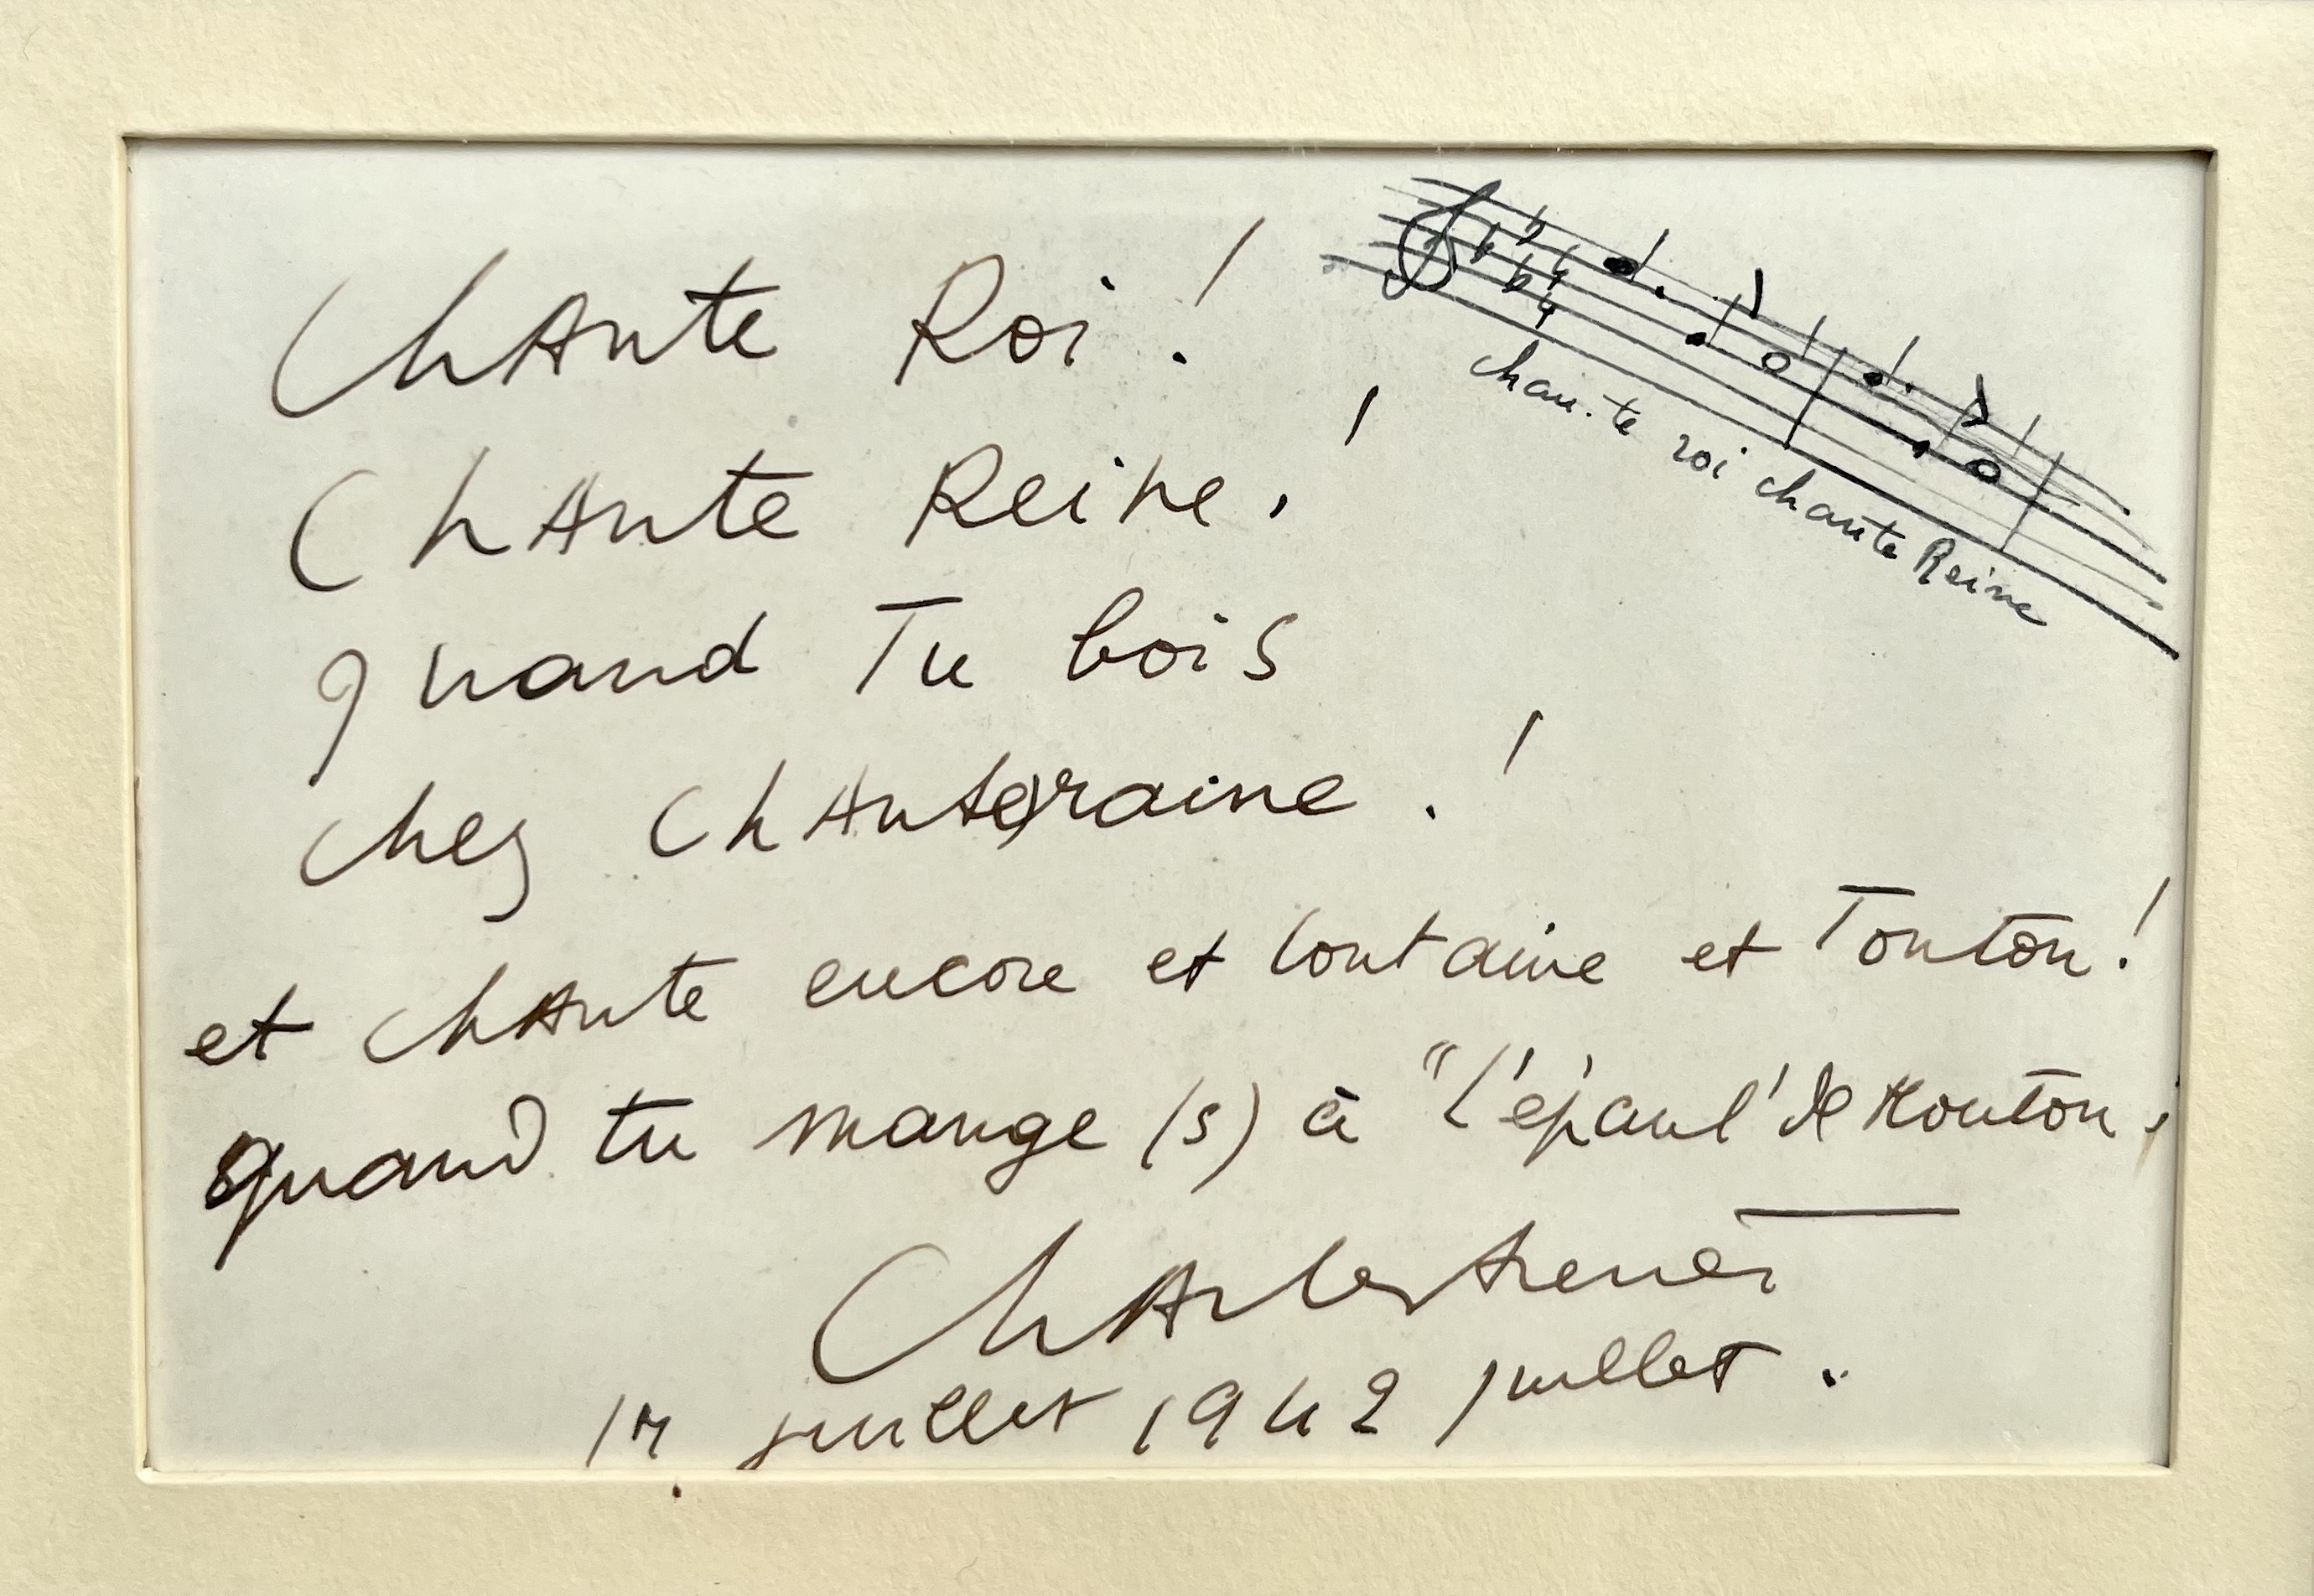 Chante Roi !
Chante Reine !
quand Tu bois
chez Chanteraine !
et chante encore et lontaine et Tonton !
quand tu mange (s) à "l'épaul' de Mouton.
Charles Trenet
juillet 1942 juillet .
4
4
chan-te roi chante Reine